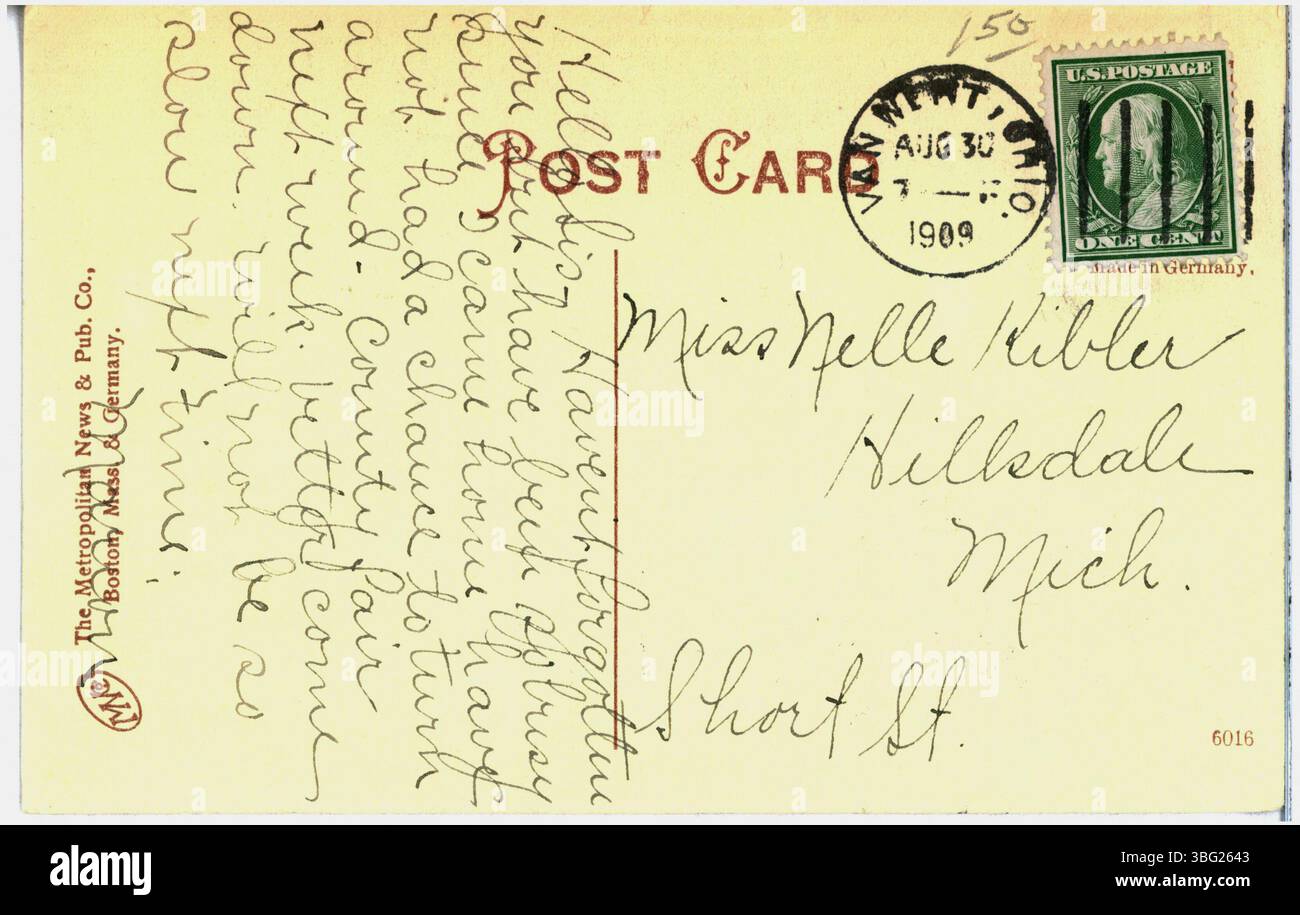 150
U.S. POSTAGE
ONE CENT
VAN WERT, OHIO.
AUG 30
7
1909
POST CARD
Made in Germany.
Miss Nelle Kibler
Hillsdale
Mich.
Short St.
6016
Hello Sis. Havent forgotten
you but have been so busy
since I came home have
not had a chance to turn
around. County Fair
next week. better come
down. will not be so
slow next time.
The Metropolitan News & Pub. Co.,
Boston, Mass. & Germany.
a alamy
Image ID: 3BG2643
www.alamy.com